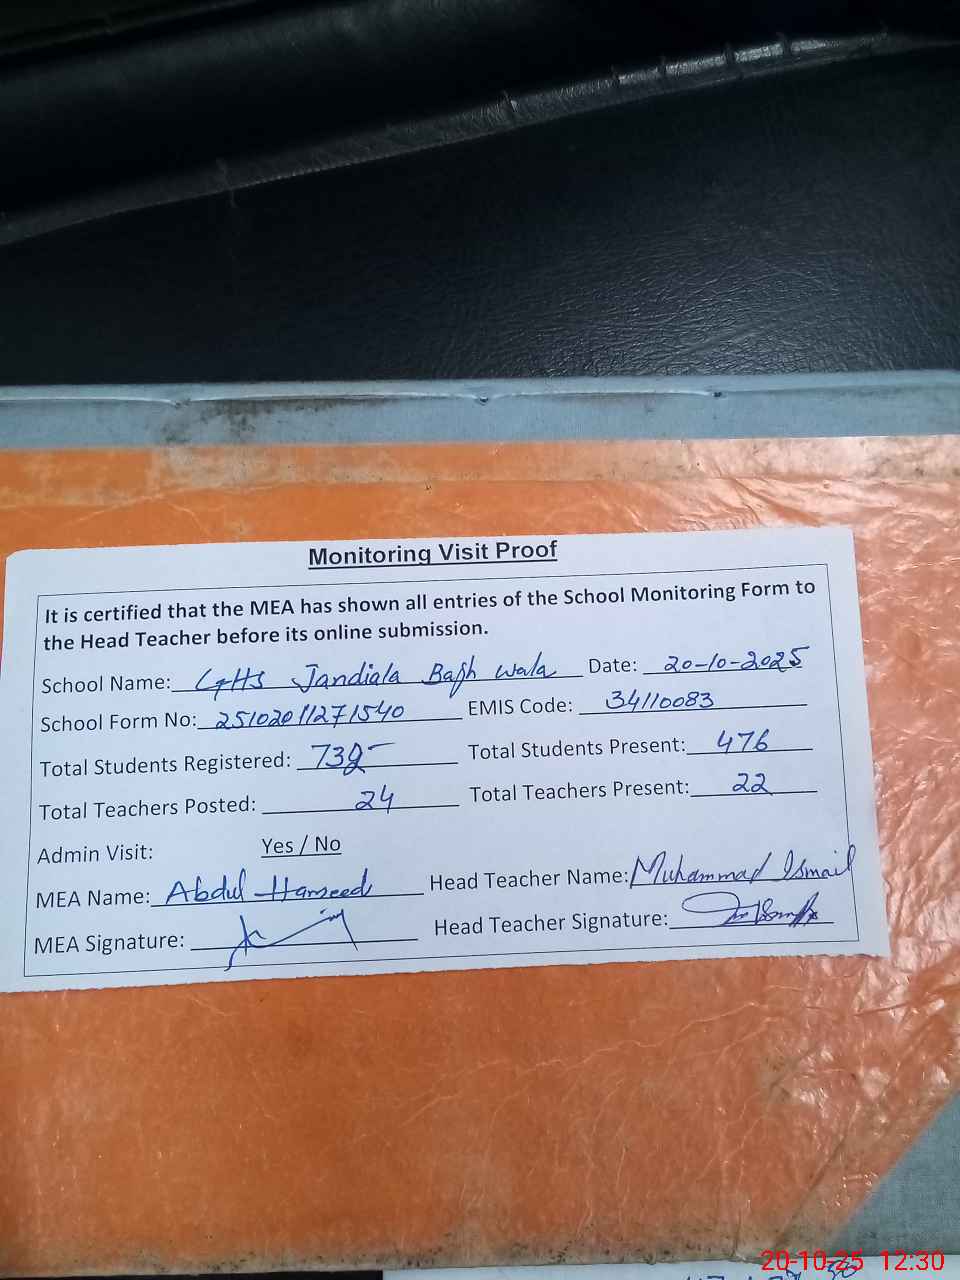 Monitoring Visit Proof
It is certified that the MEA has shown all entries of the School Monitoring Form to
the Head Teacher before its online submission.
School Name: GHS Jandiala Bagh wala Date: 20-10-2025
School Form No: 25102011271540 EMIS Code: 34110083
Total Students Registered: Total Students Present: 476
Total Teachers Posted: 24 Total Teachers Present: 22
Admin Visit: Yes / No
MEA Name: Abdul Hameed Head Teacher Name: Muhammad Ismail
MEA Signature: Head Teacher Signature:
20-10-25 12:30